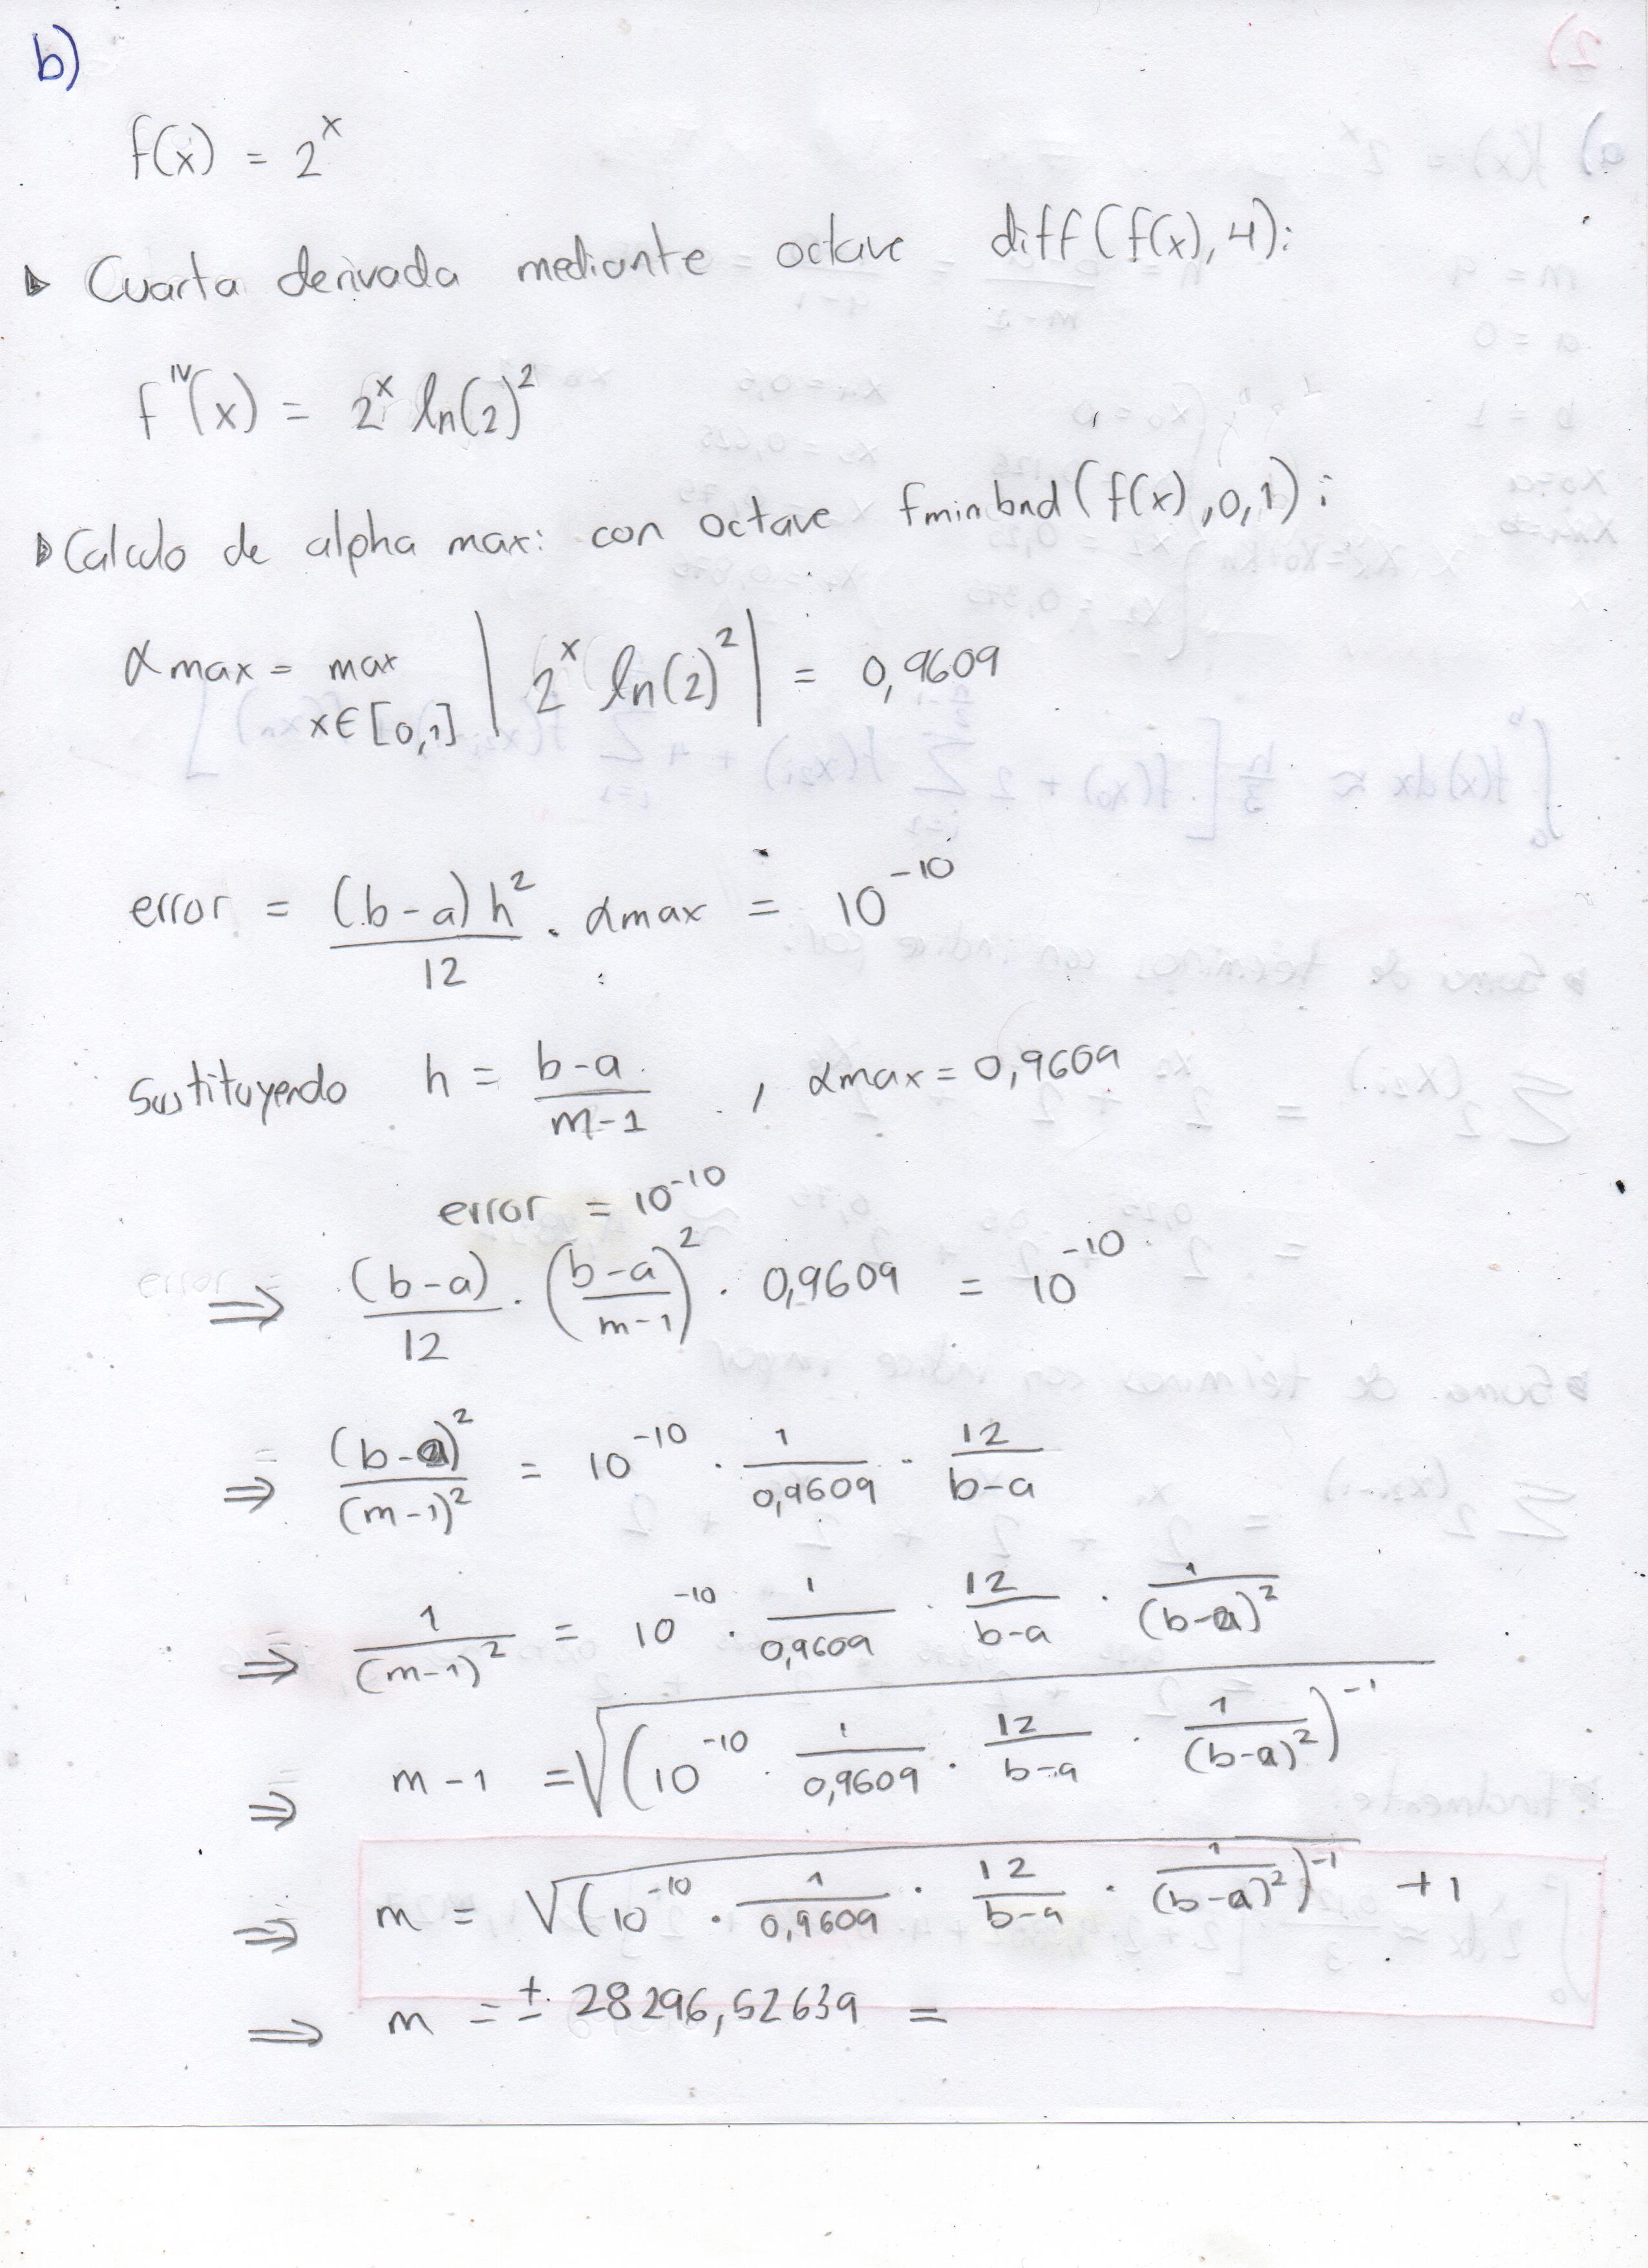 b)
f(x) = 2^x
▷ Cuarta derivada mediante octave diff(f(x),4):
f^IV(x) = 2^x ln(2)^2
▷ Calculo de alpha max: con octave fminbnd(f(x),0,1):
αmax = max x∈[0,1] | 2^x ln(2)^2 | = 0,9609
error = (b-a)h^2 / 12 · αmax = 10^-10
Sustituyendo h = (b-a)/(m-1) , αmax = 0,9609
error = 10^-10
⇒ (b-a)/12 · ((b-a)/(m-1))^2 · 0,9609 = 10^-10
⇒ (b-a)^2/(m-1)^2 = 10^-10 · 1/0,9609 · 12/(b-a)
⇒ 1/(m-1)^2 = 10^-10 · 1/0,9609 · 12/(b-a) · 1/(b-a)^2
⇒ m-1 = √(10^-10 · 1/0,9609 · 12/(b-a) · 1/(b-a)^2)^-1
⇒ m = √(10^-10 · 1/0,9609 · 12/(b-a) · 1/(b-a)^2)^-1 + 1
⇒ m = ± 28296,52639 =